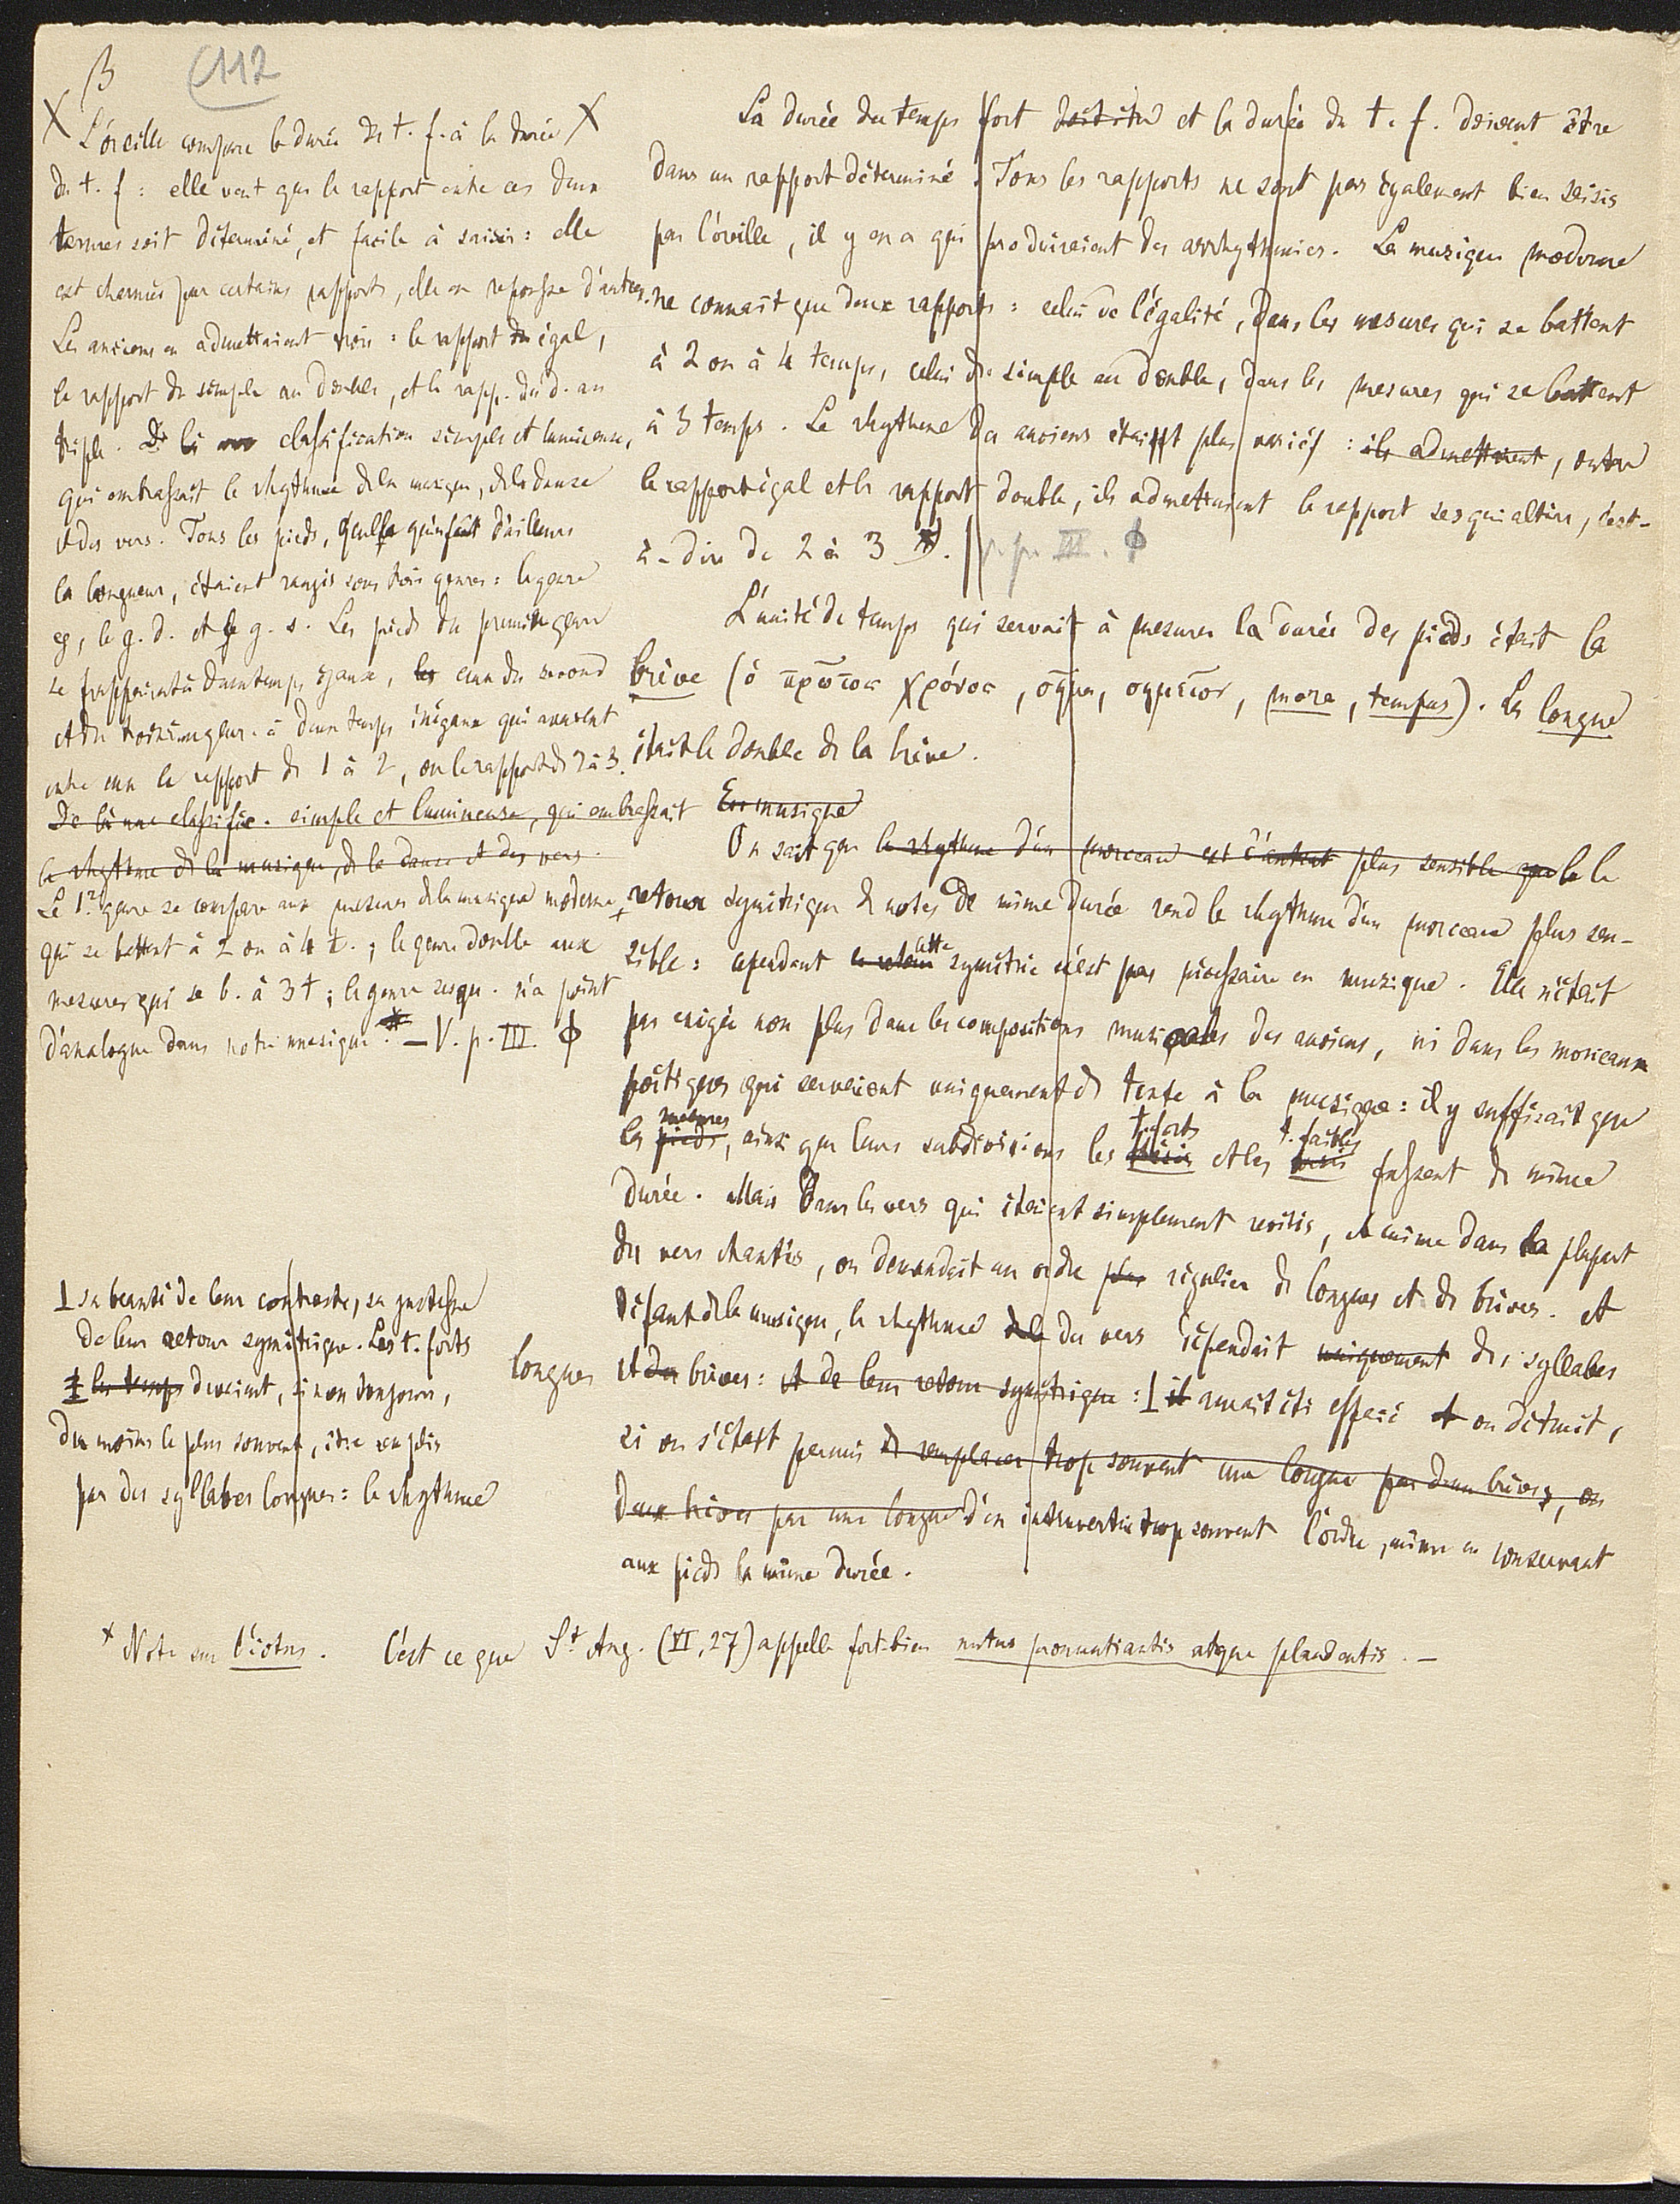 β
112
X L'oreille compare la durée du t. f. à la durée X
du t. f : elle veut que le rapport entre ces deux
termes soit déterminé, et facile à saisir : elle
est charmée par certains rapports, elle en repousse d'autres.
Les anciens en admettaient trois : le rapport du égal,
le rapport du simple au double, et le rapp. du d. au
triple. De là une classification simple et lumineuse,
qui embrassait le rhythme de la musique, de la danse
et des vers. Tous les pieds, quelle qu'en fût d'ailleurs
la longueur, étaient rangés sous trois genres : le genre
eg, le g. d. et le g. s. Les pieds du premier genre
se frappaient à deux temps égaux, les ceux du second
et du troisième genre à deux temps inégaux qui avaient
entre eux le rapport de 1 à 2, ou le rapport de 2 à 3.
De là une classific. simple et lumineuse, qui embrassait
le rhythme de la musique, de la danse et des vers.
Le 1er genre se compare aux mesures de la musique moderne
qui se battent à 2 ou à 4 t. ; le genre double aux
mesures qui se b. à 3 t ; le genre sesqu. n'a point
d'analogue dans notre musique. — V. p. III. ϕ
⊥ sa beauté de leur contraste, sa justesse
de leur retour symétrique. Les t. forts
‡ les temps devaient, sinon toujours,
du moins le plus souvent, être remplis
par des syllabes longues : le rhythme
La durée du temps fort doit être et la durée du t. f. doivent être
dans un rapport déterminé. Tous les rapports ne sont pas également bien saisis
par l'oreille, il y en a qui produiraient des arrhythmies. La musique moderne
ne connaît que deux rapports : celui de l'égalité, dans les mesures qui se battent
à 2 ou à 4 temps, celui du simple au double, dans les mesures qui se battent
à 3 temps. Le rhythme des anciens était plus varié : ils admettaient, outre
le rapport égal et le rapport double, ils admettaient le rapport sesquialtère, c'est-
à-dire de 2 à 3. p. III. ϕ
L'unité de temps qui servait à mesurer la durée des pieds était la
brève (ὁ πρῶτος χρόνος, σῆμα, σημεῖον, mora, tempus). La longue
était le double de la brève.
En musique
On sait que le rhythme d'un morceau est d'autant plus sensible que le le
+ retour symétrique de notes de même durée rend le rhythme d'un morceau plus sen-
sible : cependant ce retour cette symétrie n'est pas nécessaire en musique. Elle n'était
pas exigée non plus dans les compositions musicales des anciens, ni dans les morceaux
poétiques qui servaient uniquement de texte à la musique : il y suffisait que
les pieds mesures, ainsi que leurs subdivisions les thésis t. forts et les arsis t. faibles fussent de même
durée. Mais Dans les vers qui étaient simplement récités, et même dans la plupart
des vers chantés, on demandait un ordre plus régulier de longues et de brèves. Et
Séparé de la musique, le rhythme de la du vers dépendait uniquement des syllabes
longues et des brèves : et de leur retour symétrique : ⊥ il aurait été effacé et ou détruit,
si on s'était permis de remplacer trop souvent une longue par deux brèves, ou
deux brèves par une longue d'en intervertir trop souvent l'ordre, même en conservant
aux pieds la même durée.
+ Note sur l'ictus. C'est ce que St Aug. (VI, 27) appelle fort bien motus pronuntiantis atque plaudentis. —